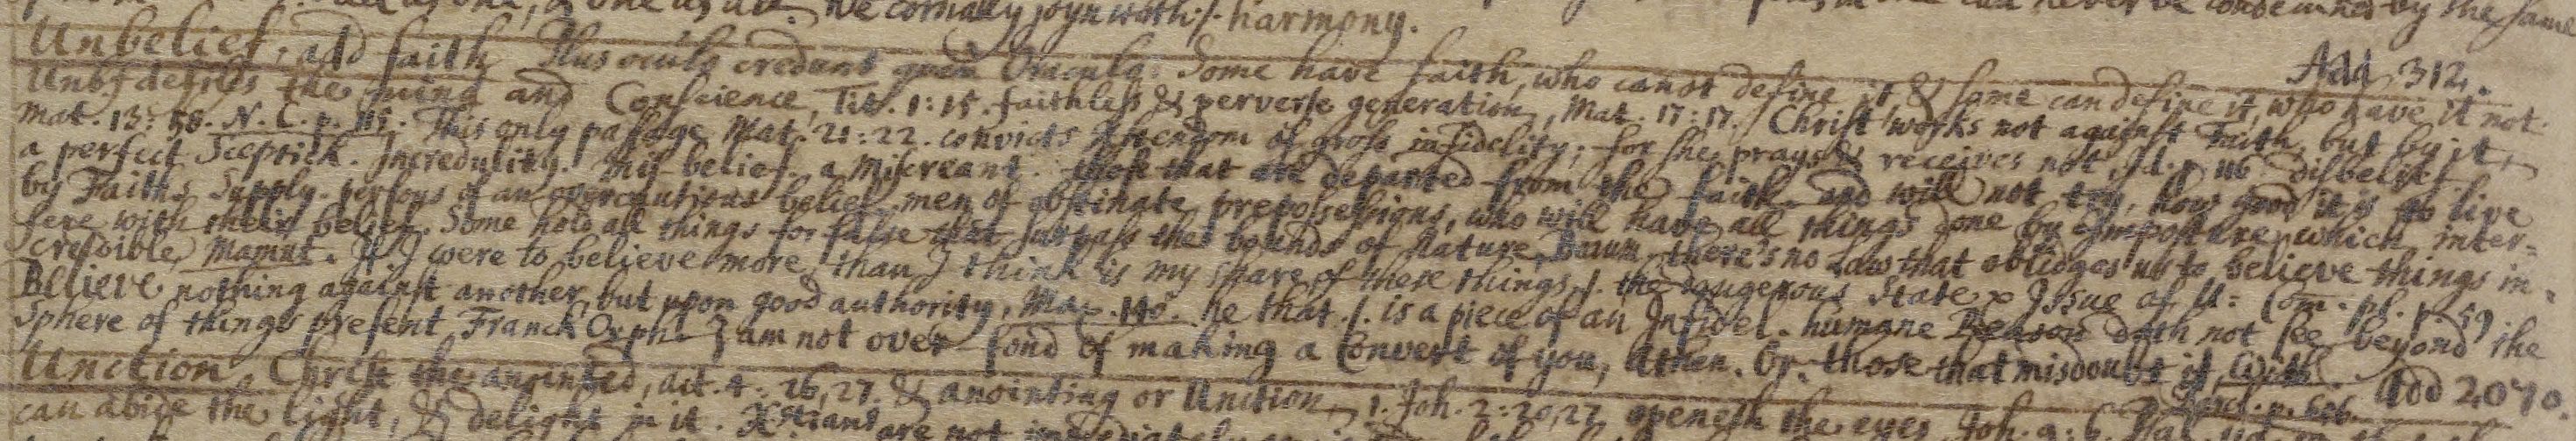 all as one, & one as all. We cordially joyn with ./. harmony. never be condemned by the same
Unbelief, add faith Plus oculo credunt quam Oraculo. Some have faith, who canot define it, & some can define it, who have it not. Add 312.
Unbf defiles the mind and Conscience, Tit. 1:15. faithless & perverse generation, Mat. 17:17. / Christ works not against Faith, but by it,
Mat. 13:58. N. C. p. 115. This only passage Mat. 21:22. convicts of gross infidelity; for she prays & receives not, Id. p. 116 disbelief.
a perfect Sceptick. Incredulity. mis-belief. a Miscreant. those that are departed from the faith, and will not try, how good it is to live
by Faiths Supply. persons of an overcautious belief. men of obstinate prepossessions, who will have all things done by Imposture, which inter=
fere with their belief. Some hold all things for false that surpass the bounds of nature, there's no Law that obliedges us to believe things in=
credible, Mamut. If I were to believe more, than I think is my share of these things, ./. the dangerous State & Issue of U: Com. pl. p. 59
Believe nothing against another but upon good authority, Max. 140. he that ./. is a piece of an Infidel. humane Reason doth not see beyond the
Sphere of things present, Franck Orph. I am not over-fond of making a Convert of you, Athen. Or. those that misdoubt it, p. 606. Add 2070.
Unction. Christ the anointed, act. 4:26,27. & anointing or Unction, 1. Joh. 2:20,27 openeth the eyes, Joh. 9:6.
can abide the light, & delight in it. Xstians are not immediately